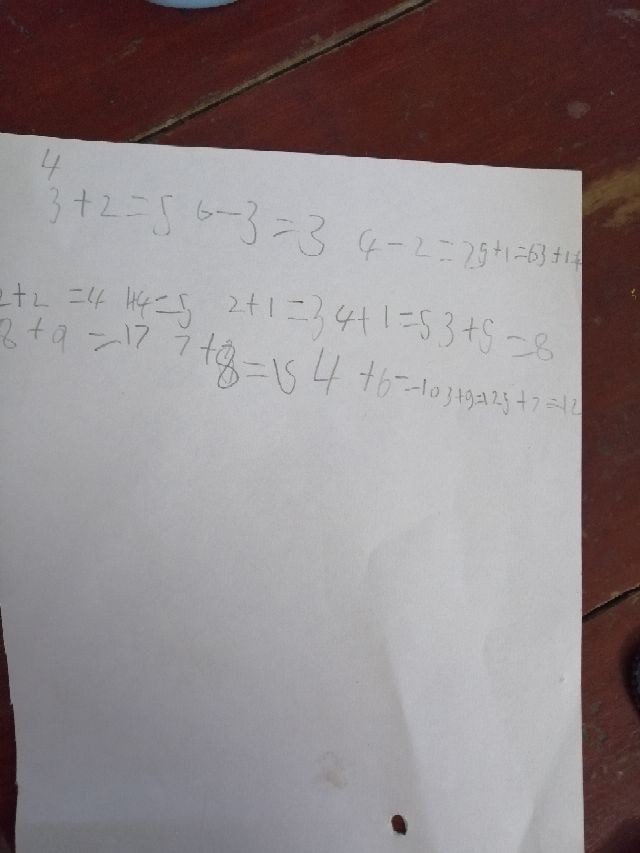 4
3+2=5 6-3=3 4-2=2 5+1=6 3+1=
2+2=4 1+4=5 2+1=3 4+1=5 3+5=8
8+9=17 7+8=15 4+6=10 3+9=12 5+7=12